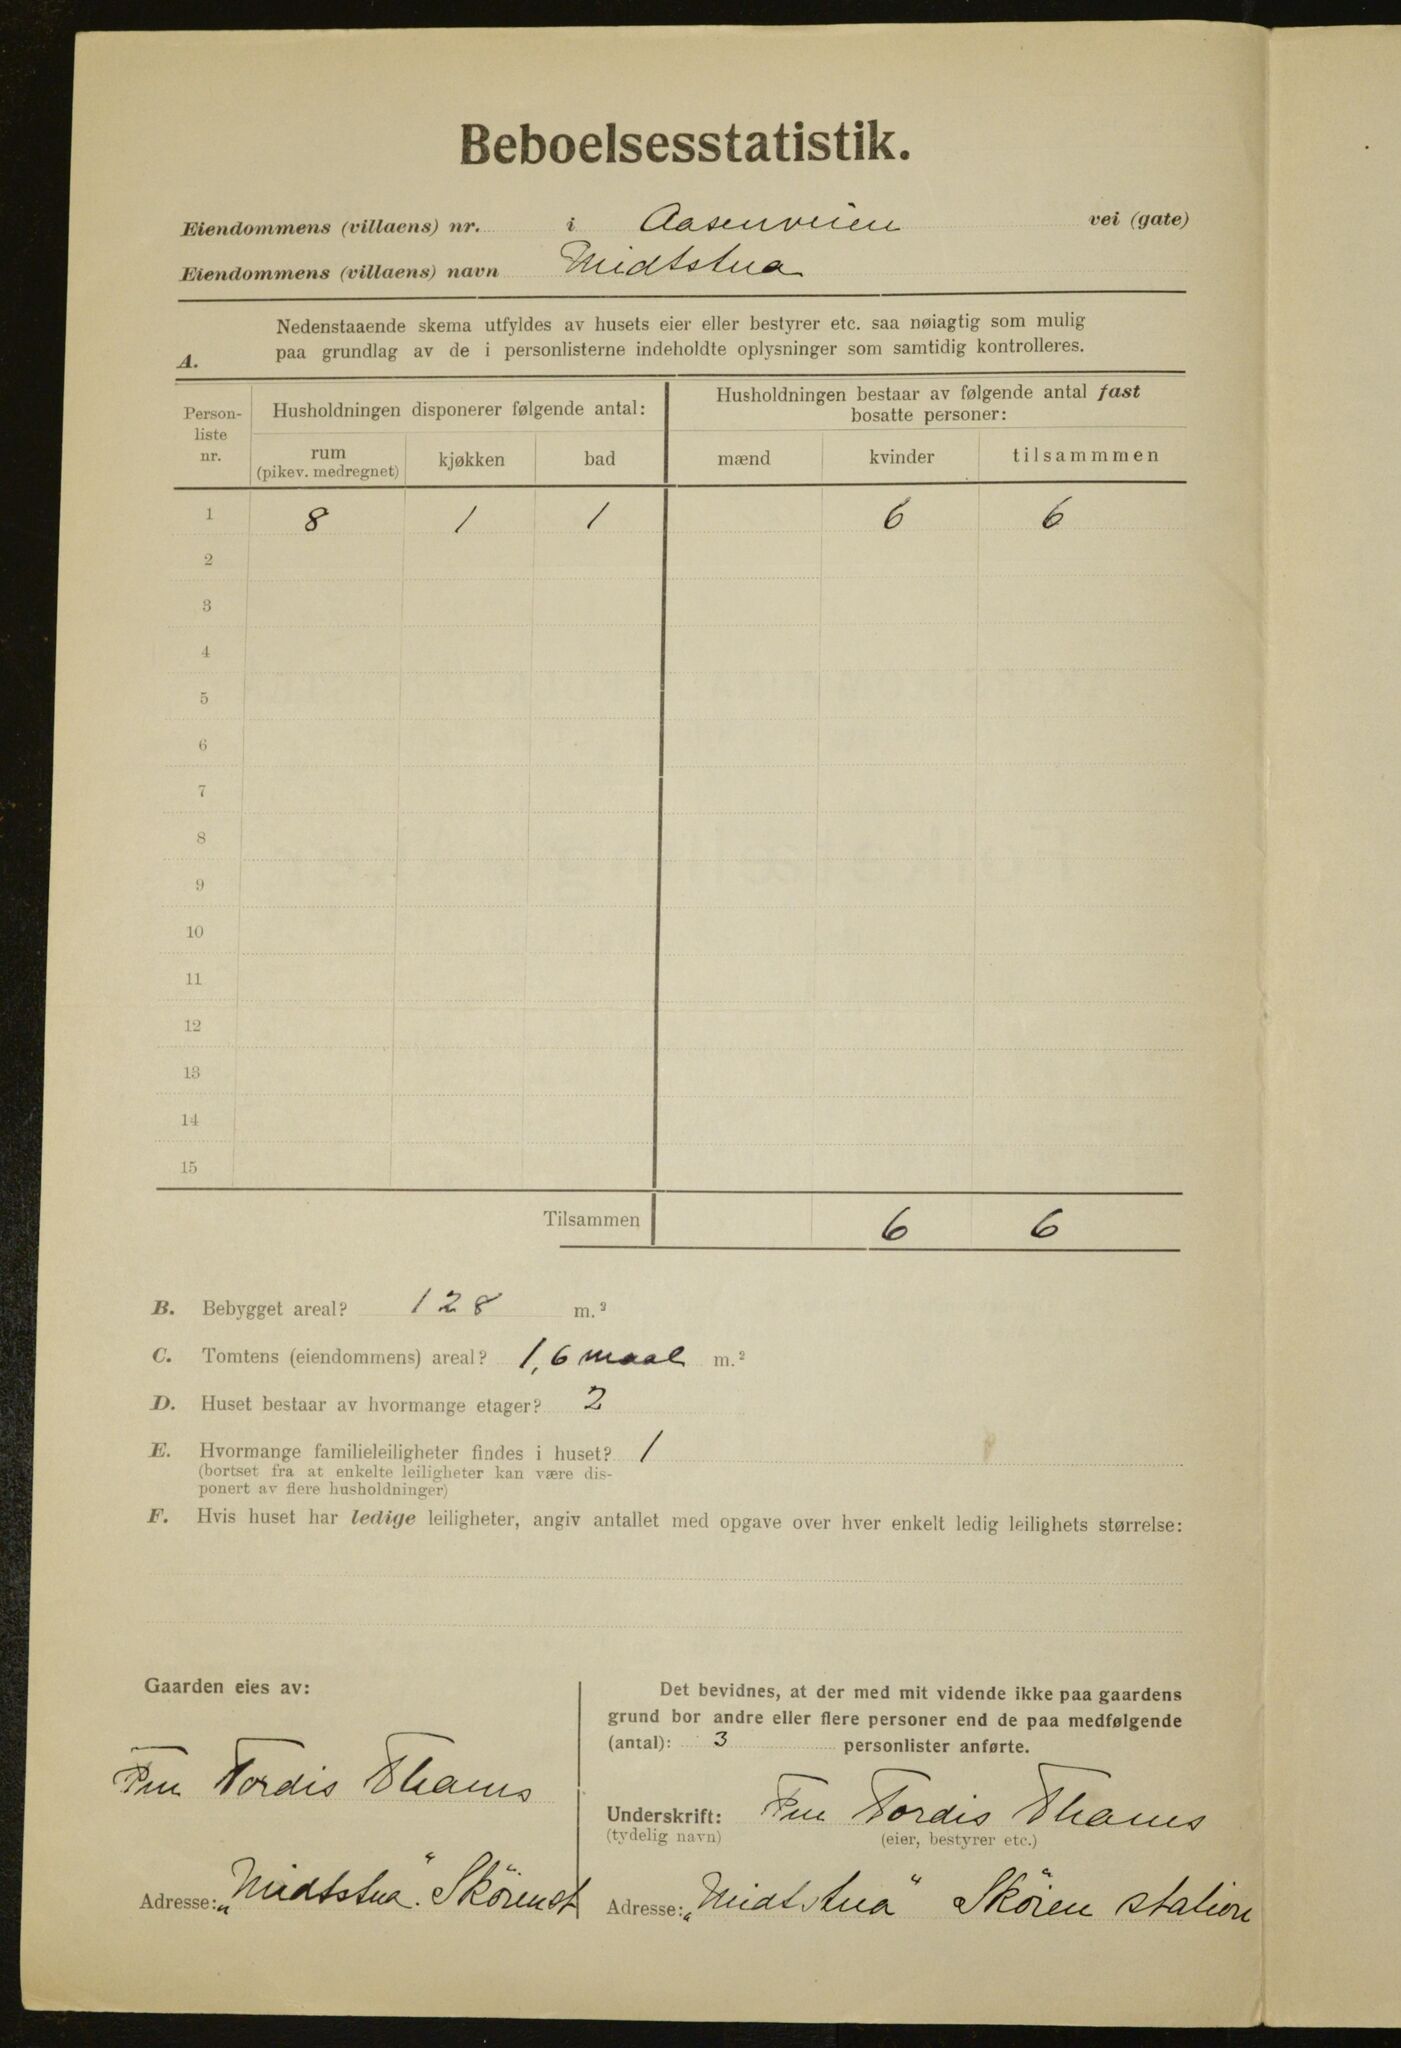 Beboelsesstatistik.
Eiendommens (villaens) nr. i Aasenveien vei (gate)
Eiendommens (villaens) navn Midtstua
Nedenstaaende skema utfyldes av husets eier eller bestyrer etc. saa nøiagtig som mulig
A. paa grundlag av de i personlisterne indeholdte oplysninger som samtidig kontrolleres.
Person-liste nr. Husholdningen disponerer følgende antal: Husholdningen bestaar av følgende antal fast bosatte personer:
rum (pikev. medregnet) kjøkken bad mænd kvinder tilsammmen
1 8 1 1 6 6
2
3
4
5
6
7
8
9
10
11
12
13
14
15
Tilsammen 6 6
B. Bebygget areal? 128 m.²
C. Tomtens (eiendommens) areal? 1,6 maal m.²
D. Huset bestaar av hvormange etager? 2
E. Hvormange familieleiligheter findes i huset? 1
(bortset fra at enkelte leiligheter kan være dis-
ponert av flere husholdninger)
F. Hvis huset har ledige leiligheter, angiv antallet med opgave over hver enkelt ledig leilighets størrelse:
Gaarden eies av:
Fru Tordis Thams
Adresse: „Midtstua“. Sköienst
Det bevidnes, at der med mit vidende ikke paa gaardens
grund bor andre eller flere personer end de paa medfølgende
(antal): 3 personlister anførte.
Underskrift: Fru Tordis Thams
(tydelig navn) (eier, bestyrer etc.)
Adresse: „Midtstua“ Sköien station